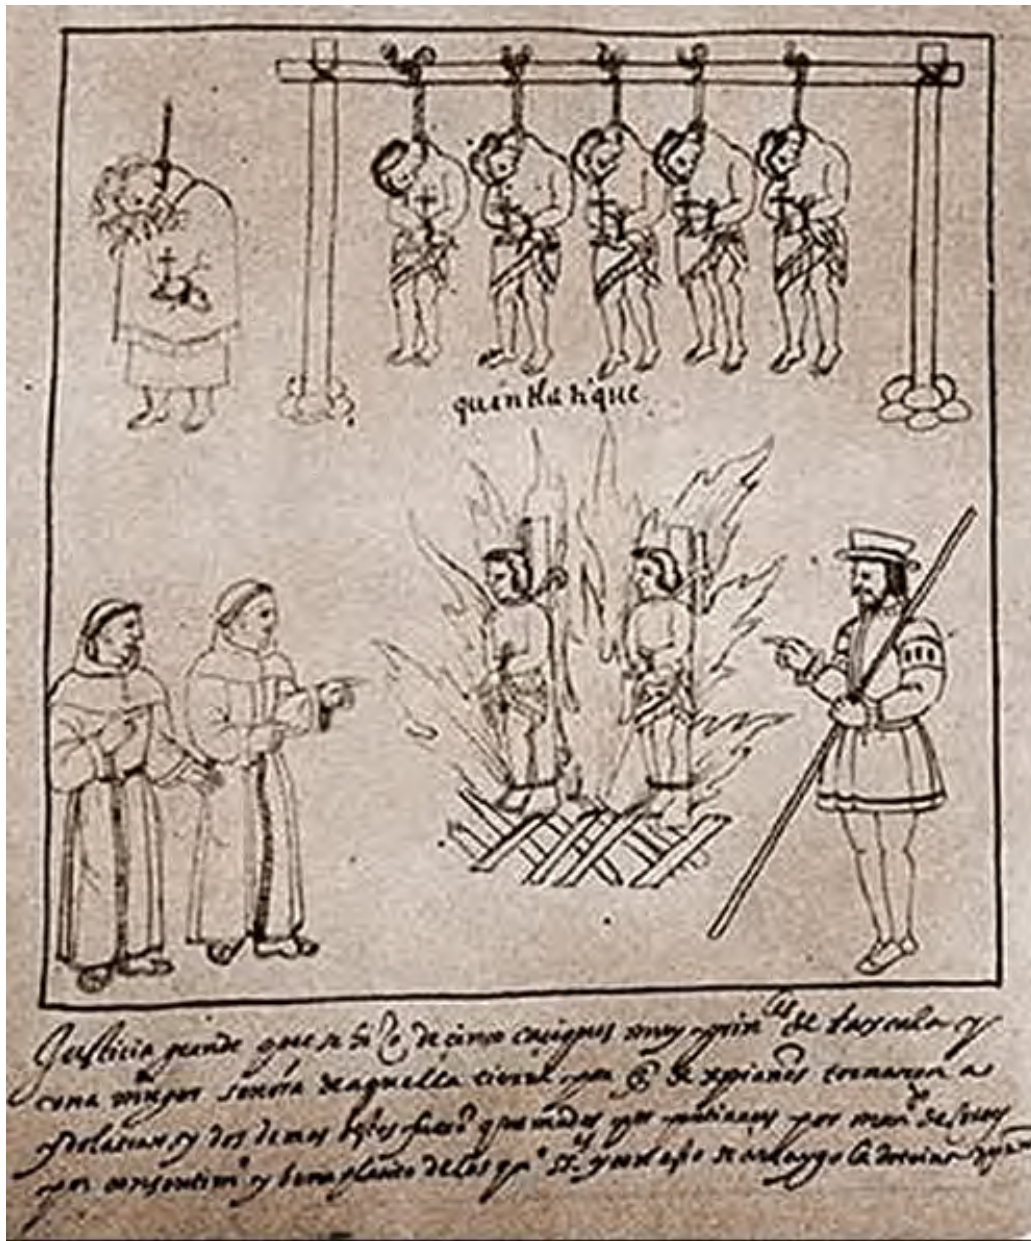 quintlatique
Justicia grande que se hiço de cinco caçiques muy prinçs de taxcala y
una muger señora de aquella tierra porq de xpianos tornaron a
ydolatrar, y dos demas fuerō quemados por pertinaçes por manᵒ de cortes
por consentimᵒ y beneplacito de los qᵒ Sᵉˢ y con esto se arraygo la doctrina